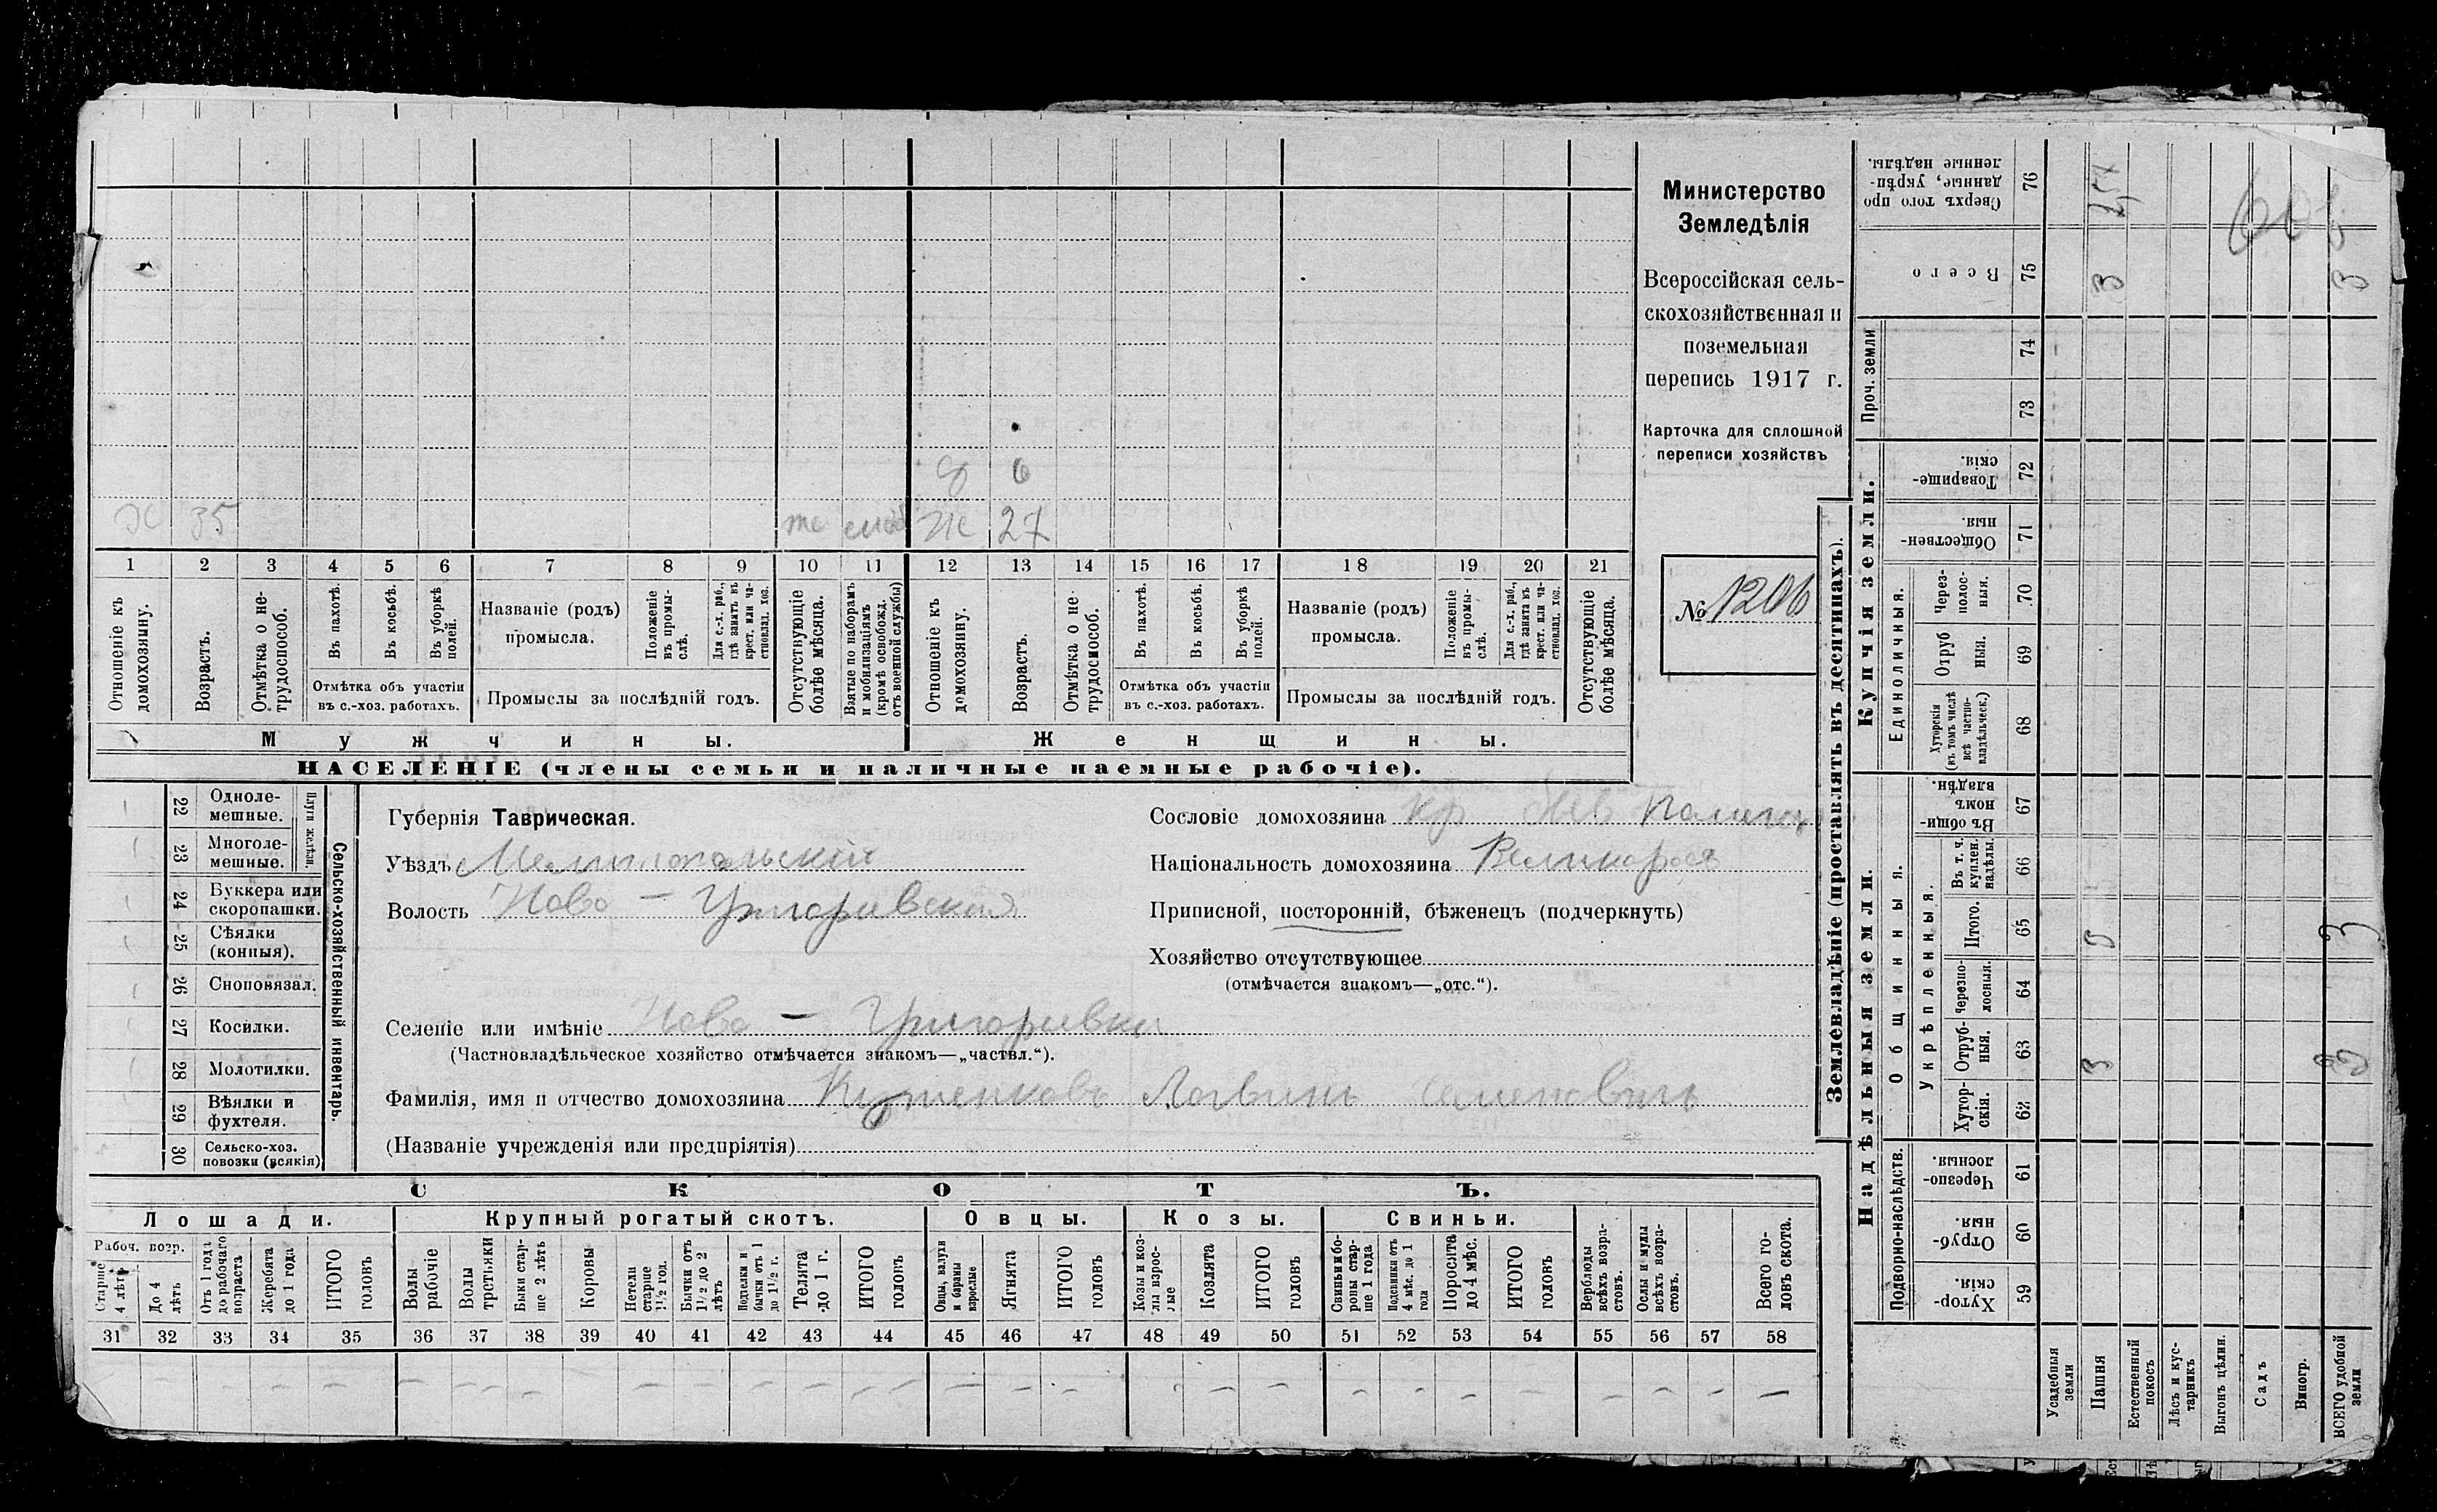 Министерство
Земледѣлія
Всероссійская сель-
скохозяйственная и
поземельная
перепись 1917 г.
Карточка для сплошной
переписи хозяйствъ
№ 1206
8 6
Х 35 же Ж 27
1 2 3 4 5 6 7 8 9 10 11 12 13 14 15 16 17 18 19 20 21
Отношеніе къ домохозяину.
Возрастъ.
Отмѣтка о не-трудоспособ.
Въ пахотѣ.
Въ косьбѣ.
Въ уборкѣ полей.
Отмѣтка объ участіи
въ с.-хоз. работахъ.
Названіе (родъ)
промысла.
Положеніе въ промы-слѣ.
Для с.-х. раб., гдѣ занятъ въ крест. или ча-стновлад. хоз.
Промыслы за послѣдній годъ.
Отсутствующіе болѣе мѣсяца.
Взятые по наборамъ и мобилизаціямъ (кромѣ освобожд. отъ военной службы)
Отношеніе къ домохозяину.
Возрастъ.
Отмѣтка о не-трудоспособ.
Въ пахотѣ.
Въ косьбѣ.
Въ уборкѣ полей.
Отмѣтка объ участіи
въ с.-хоз. работахъ.
Названіе (родъ)
промысла.
Положеніе въ промы-слѣ.
Для с.-х. раб., гдѣ занята въ крест. или ча-стновлад. хоз.
Промыслы за послѣдній годъ.
Отсутствующіе болѣе мѣсяца.
Мужчины.
Женщины.
НАСЕЛЕНІЕ (члены семьи и наличные наемные рабочіе).
Сельско-хозяйственный инвентарь.
Плуги желѣзн.
22 Одноле-мешные.
23 Многоле-мешные.
24 Буккера или скоропашки.
25 Сѣялки (конныя).
26 Сноповязал.
27 Косилки.
28 Молотилки.
29 Вѣялки и фухтеля.
30 Сельско-хоз. повозки (всякія)
Губернія Таврическая.
Уѣздъ Мелитопольскій
Волость Ново - Григорьевская
Селеніе или имѣніе Ново - Григорьевка
(Частновладѣльческое хозяйство отмѣчается знакомъ—„частвл.“).
Фамилія, имя и отчество домохозяина Логвинъ Семеновичъ
(Названіе учрежденія или предпріятія)
Сословіе домохозяина кр
Національность домохозяина Великороссъ
Приписной, посторонній, бѣженецъ (подчеркнуть)
Хозяйство отсутствующее
(отмѣчается знакомъ—„отс.“).
СКОТЪ.
Лошади. Крупный рогатый скотъ. Овцы. Козы. Свиньи.
Рабоч. возр.
Старше 4 лѣтъ
До 4 лѣтъ
Отъ 1 года до рабочаго возраста
Жеребята до 1 года
ИТОГО головъ
Волы рабочіе
Волы третьяки
Быки стар-ше 2 лѣтъ
Коровы
Нетели старше 1 1/2 год.
Бычки отъ 1 1/2 до 2 лѣтъ
Подтелки и бычки отъ 1 до 1 1/2 г.
Телята до 1 г.
ИТОГО головъ
Овцы, валухи и бараны взрослые
Ягнята
ИТОГО головъ
Козы и коз-лы взрос-лые
Козлята
ИТОГО головъ
Свиньи и бо-ровы стар-ше 1 года
Подсвинки отъ 4 мѣс. до 1 года
Поросята до 4 мѣс.
ИТОГО головъ
Верблюды всѣхъ возра-стовъ.
Ослы и мулы всѣхъ возра-стовъ.
Всего го-ловъ скота.
31 32 33 34 35 36 37 38 39 40 41 42 43 44 45 46 47 48 49 50 51 52 53 54 55 56 57 58
Землевладѣніе (проставлять въ десятинахъ).
Купчія земли.
Надѣльныя земли.
Проч. земли
Единоличныя.
Общинныя.
Укрѣпленныя.
Подворно-наслѣдств.
76 Сверхъ того про-данные, укрѣп-ленные надѣлы.
75 Всего
74
73
72 Товарище-скія.
71 Обществен-ныя.
70 Через-полос-ныя.
69 Отруб-ныя.
68 Хуторскія (въ томъ числѣ всѣ частно-владѣльческ.)
67 Въ общин-номъ владѣн.
66 Въ т. ч. куплен. надѣлы.
65 Итого.
64 Черезпо-лосныя.
63 Отруб-ныя.
62 Хутор-скія.
61 Черезпо-лосныя.
60 Отруб-ныя.
59 Хутор-скія.
Усадебныя земли
Пашня
Естественный покосъ
Лѣсъ и кус-тарникъ
Выгонъ цѣлин.
Садъ
Виногр.
ВСЕГО удобной земли
3 3
3
3